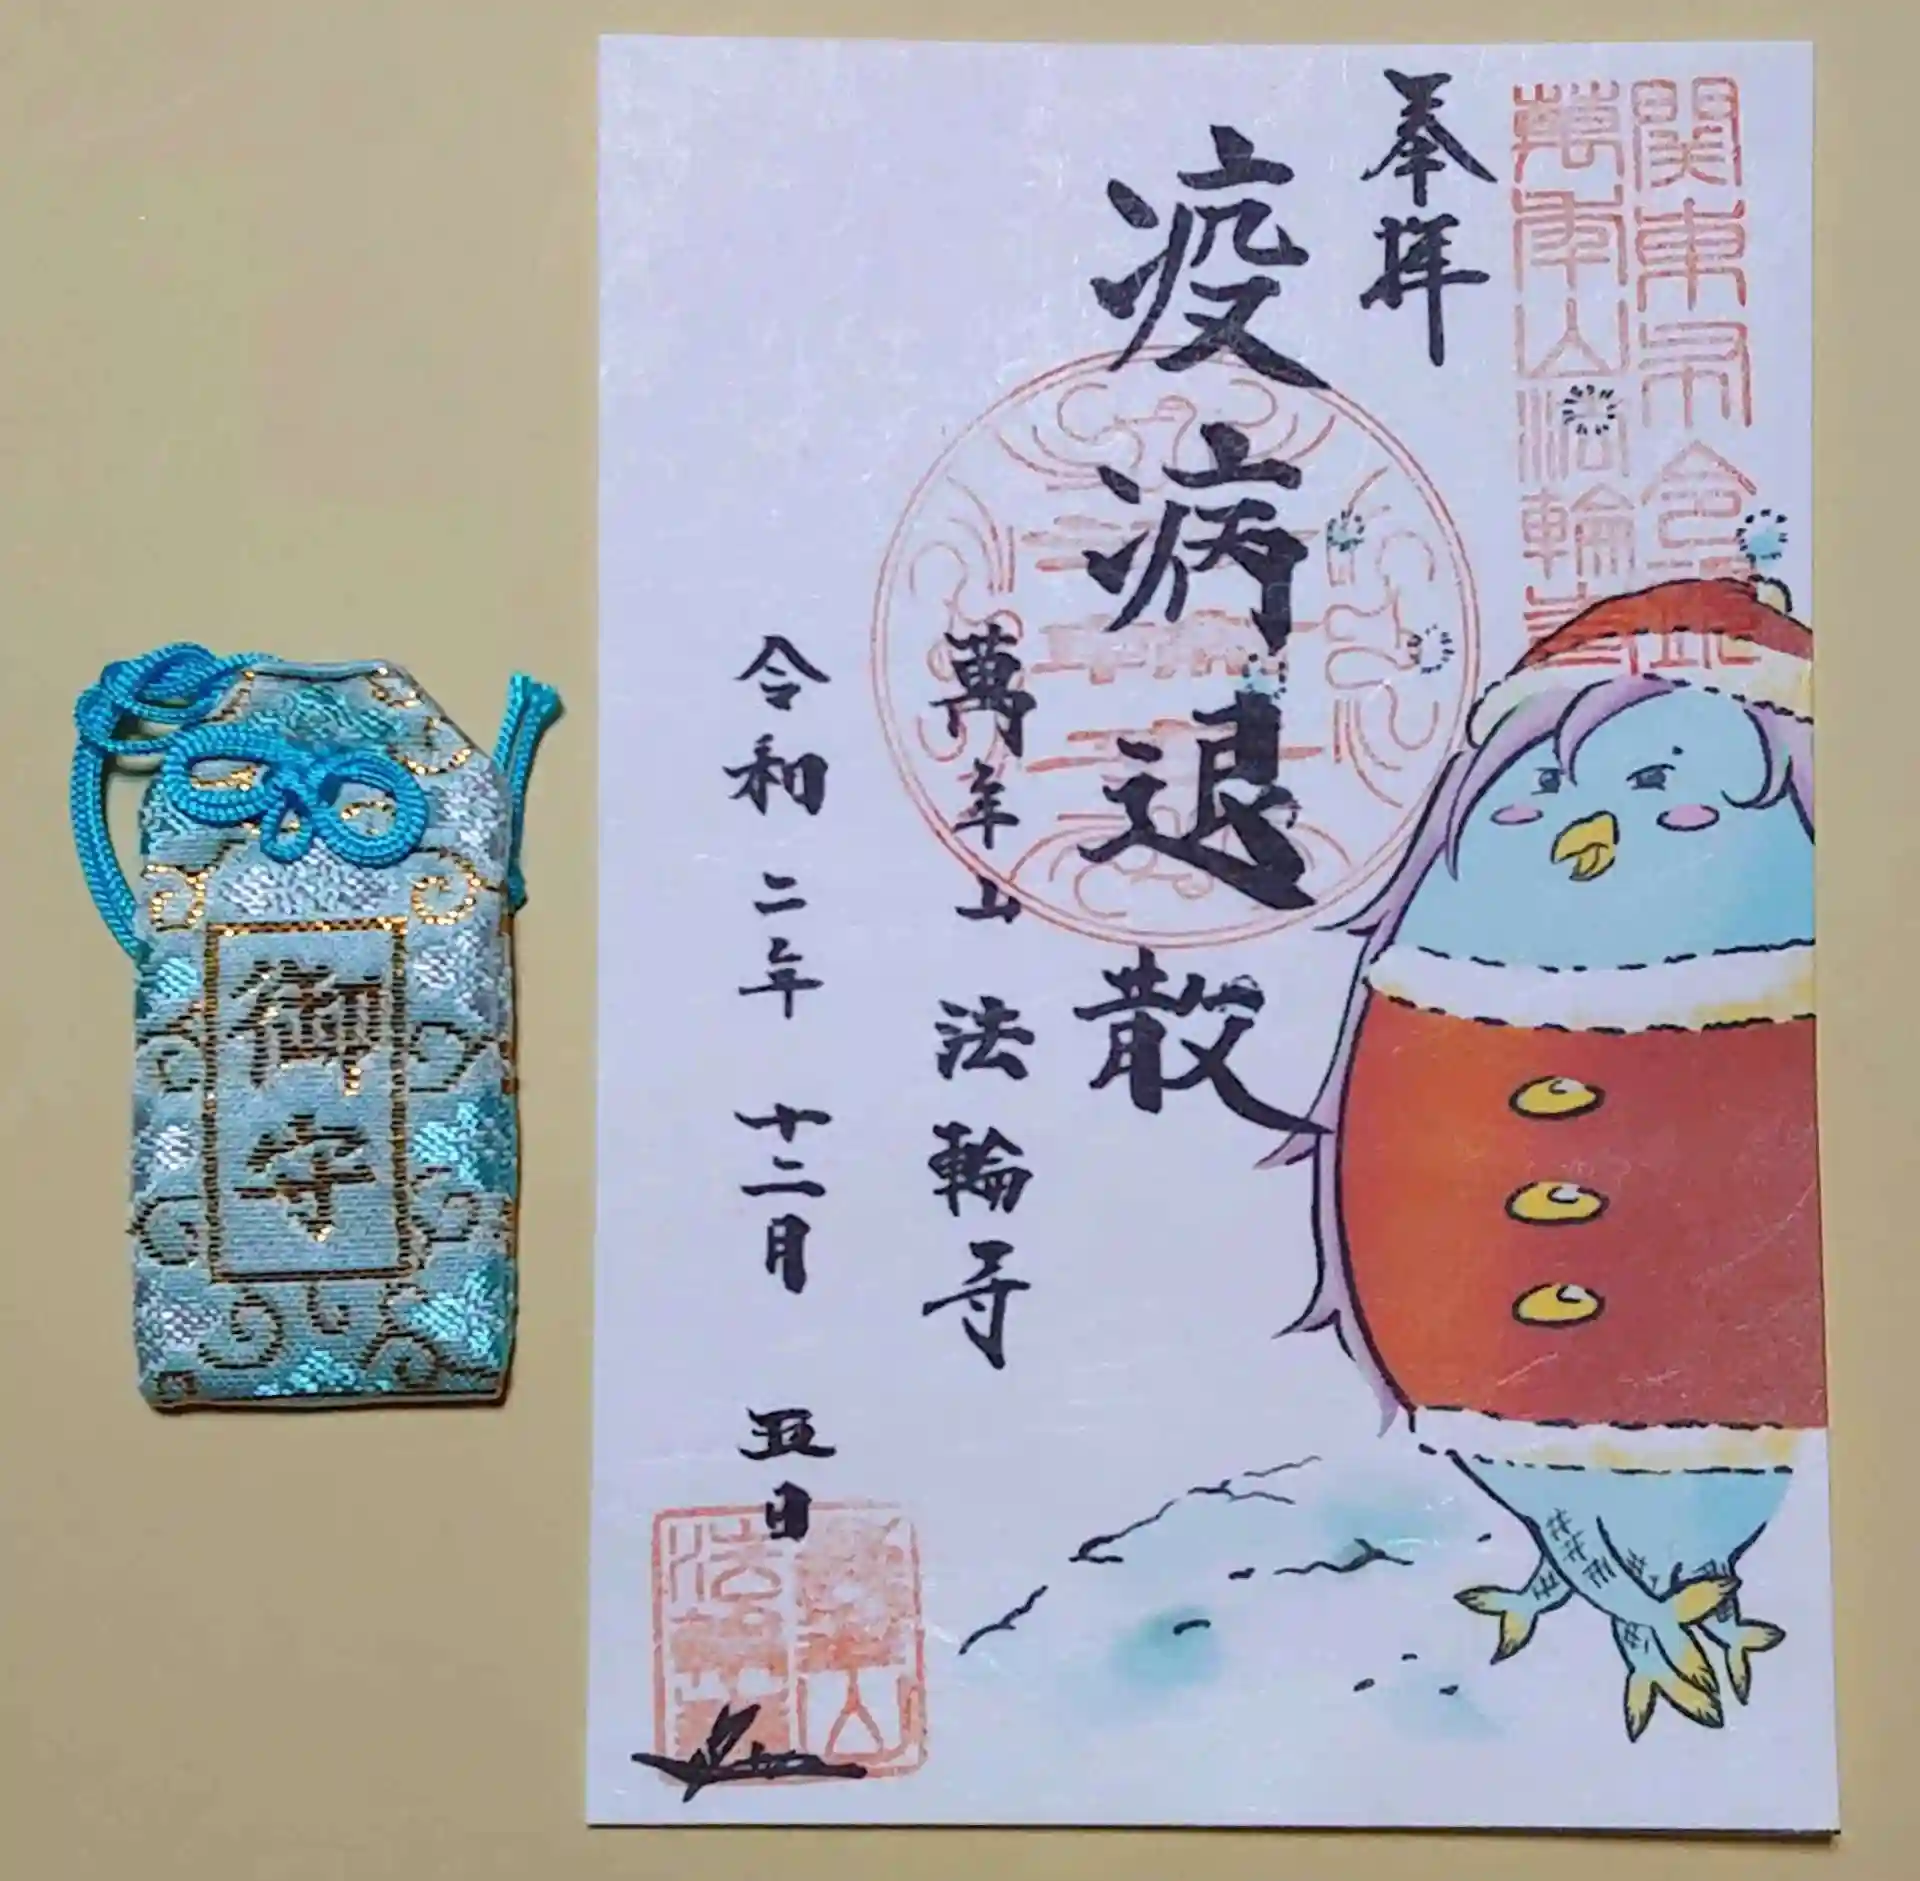 関東布金山
萬年山法輪寺
奉拝
疫病退散
萬年山 法輪寺
令和二年 十二月 五日
御守